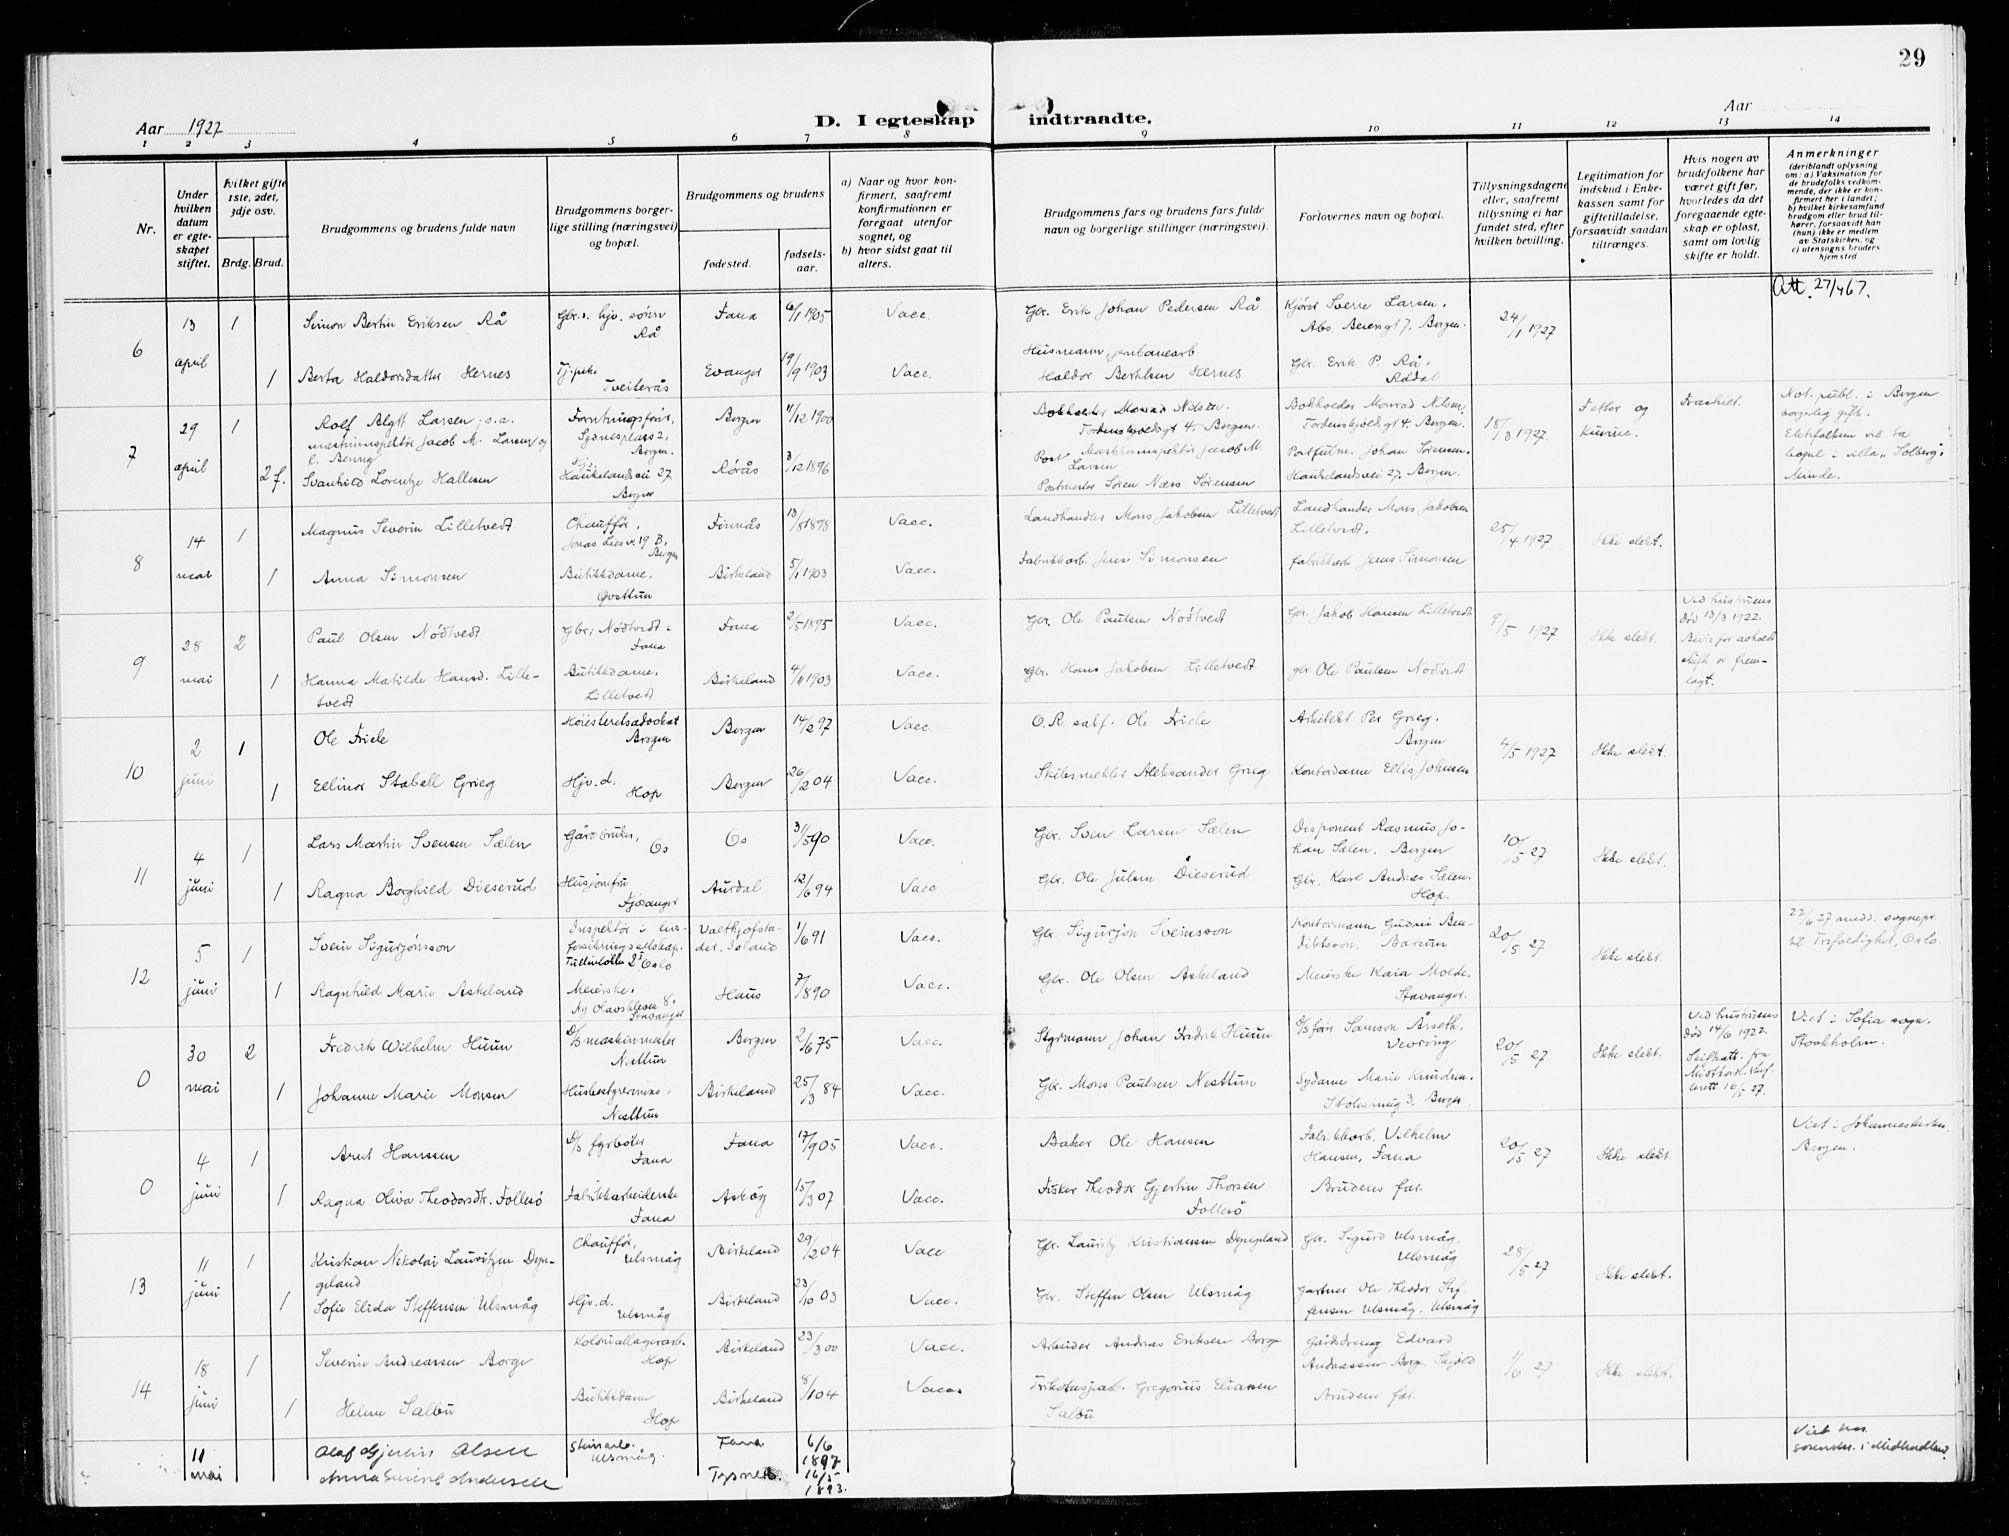 29
Aar 1927
D. I egteskap indtraadte.
Aar
1 2 3 4 5 6 7 8 9 10 11 12 13 14
Nr.
Under hvilken datum er egteskapet stiftet.
Hvilket gifte 1ste, 2det, 3dje osv.
Brdg. Brud.
Brudgommens og brudens fulde navn
Brudgommens borgerlige stilling (næringsvei) og bopæl.
Brudgommens og brudens
fødested. fødselsaar.
a) Naar og hvor konfirmert, saafremt konfirmationen er foregaat utenfor sognet, og
b) hvor sidst gaat til alters.
Brudgommens fars og brudens fars fulde navn og borgerlige stillinger (næringsvei).
Forlovernes navn og bopæl.
Tillysningsdagene eller, saafremt tillysning ei har fundet sted, efter hvilken bevilling.
Legitimation for indskud i Enkekassen samt for giftetilladelse, forsaavidt saadan tiltrænges.
Hvis nogen av brudefolkene har været gift før, hvorledes da det foregaaende egteskap er opløst, samt om lovlig skifte er holdt.
Anmerkninger
(deriblandt oplysning om: a) Vaksination for de brudefolks vedkommende, der ikke er konfirmert her i landet; b) hvilket kirkesamfund brudgom eller brud tilhører, forsaavidt han (hun) ikke er medlem av Statskirken, og c) utensogns bruders hjemsted
Att. 27/467.
6
13 april 1
Simon Bertin Eriksen Rå
Gbr.s hjv. sønn Rå
Fana 6/1 1905 Vacc.
Gbr. Erik Johan Pedersen Rå
Kjører Sverre Larsen, Abs. Beiersgt 7. Bergen.
24/1 1927
1
Berta Haldorsdatter Hernes
Tj.pike Tveiterås
Evanger 19/9 1903 Vacc.
Husmann, jernbanearb Haldor Bertilsen Hernes
Gbr. Erik P. Rå, Rådal
7
29 april 1
Rolf Blytt Larsen, s.a. maskininspektør Jacob M. Larsen og
Bergen 11/12 1900
Bokholder Monrad Nilsen, Tordenskjoldsgt 4, Bergen.
Bokholder Monrad Nilsen, Tordenskjoldsgt 4. Bergen.
18/3 1927.
Fetter og kusine.
Fraskilt.
Not. publ. i Bergen borgerlig gift. Ektefolkene vil ta bopel i villa "Solberg" Minde.
2 f.
Svanhild Lorentze Hallesen
Haukelandsvei 27 Bergen
Rørås 3/12 1896
Maskininspektør Jacob M. Larsen
Postmester Søren Næss Sørensen
Postfulm. Johan Sørensen, Haukelandsvei 27, Bergen.
8
14 mai 1
Magnus Severin Lilletvedt
Chauffør, Jonas Liesv. 19 B, Bergen
Finnås 13/8 1898 Vacc.
Landhandler Mons Jakobsen Lilletvedt
Landhandler Mons Jakobsen Lilletvedt.
25/4 1927
Ikke slekt.
1
Anna Simonsen
Butikkdame, Øvsttun
Birkeland 5/1 1903 Vacc.
Fabrikkarb. Jens Simonsen
Fabrikkarb Jens Simonsen
9
28 mai 2
Paul Olsen Nødtvedt
Gbr, Nødtvedt i Fana
Fana 2/5 1895 Vacc.
Gbr. Ole Paulsen Nødtvedt
Gbr. Jakob Hansen Lilletvedt
9/5 1927
Ikke slekt.
Ved hustruens død 13/3 1922. Bevis for avholdt skifte er fremlagt.
1
Hanna Matilde Hansd. Lilletvedt
Butikkdame, Lilletvedt
Birkeland 4/11 1903 Vacc.
Gbr. Hans Jakobsen Lilletvedt
gbr Ole Paulsen Nødtvedt
10
2 juni 1
Ole Friele
Høiesteretsadvokat Bergen
Bergen 14/2 97 Vacc.
O.R. sakf. Ole Friele
Arkitekt Per Grieg, Bergen
4/5 1927
Ikke slekt.
1
Ellinor Stabell Grieg
Hjv. d. Hop
Bergen 26/2 04 Vacc.
Skibsmekler Aleksander Grieg
Kontordame Ellis Johnsen
11
4 juni 1
Lars Martin Svensen Sælen
Gårdbruker, Os
Os 31/5 90 Vacc.
Gbr. Sven Larsen Sælen
Disponent Rasmus Johan Sælen, Bergen
10/5 27
Ikke slekt.
1
Ragna Borghild Dieserud
Husjomfru Fjøsanger
Aurdal 12/6 94 Vacc
Gbr. Ole Julsen Dieserud
Gbr. Karl Andreas Sælen. Hop.
12
5 juni 1
Svein Sigurjónsson
Inspektør i livsforsikringsselskap. Tullinløkka 2 I Oslo
Valthjofstader, Island 1/6 91 Vacc.
Gbr Sigurjón Sveinsson
Kontormann Gudni Bendiktsson, Bærum
20/5 27
Ikke slekt.
22/6 27 medd. sognepr. til Trefoldighet, Oslo.
1
Ragnhild Marie Askeland
Meierske, Ny Olavskleven 8, Stavanger
Haus 7/8 90 Vacc.
Gbr. Ole Olsen Askeland
Meierske Kaia Molde. Stavanger.
0
30 mai 2
Fredrik Wilhelm Huun
D/S maskinmester Nesttun
Bergen 2/6 75 Vacc.
Styrmann Johan Fredrik Huun
D/S fører Samson Årseth, Vevring
20/5 27
Ikke slekt.
Ved hustruens død 14/6 1922. Skifteatt. fra Midthordl. skifterett 16/5 27.
Viet i Sofia sogn, Stockholm.
1
Johanne Marie Monsen
Husbestyrerinne, Nesttun
Birkeland 25/3 84 Vacc.
Gbr. Mons Paulsen Nesttun
Sydame Marie Knudsen. Stølesmug 3. Bergen
0
4 juni 1
Arnt Hanssen
D/S fyrbøter Fana
Fana 17/9 05 Vacc.
Baker Ole Hansen
Fabrikkarb. Vilhelm Hansen, Fana
20/5 27
Ikke slekt
Viet i Johanneskirken Bergen.
1
Ragna Oliva Theodorsdtr. Follesø
Fabrikkarbeiderske Fana
Askøy 15/3 07 Vacc.
Fisker Theodor Gjertin Thorsen Follesø
Brudens far.
13
11 juni 1
Kristian Nikolai Lauritzen Dyngeland
Chauffør, Ulsmåg
Birkeland 29/2 04 Vacc
Gbr. Lauritz Kristiansen Dyngeland
Gbr. Sigurd Ulsmåg, Ulsmåg
28/5 27
Ikke slekt.
1
Sofie Elida Steffensen Ulsmåg
Hjv. d. Ulsmåg
Birkeland 23/10 03 Vacc.
Gbr. Steffen Olsen Ulsmåg
Gartner Ole Theodor Steffensen Ulsmåg, Ulsmåg
14
18 juni 1
Severin Andreassen Borge
Koloniallagerarb. Hop
Birkeland 23/3 00 Vacc.
Arbeider Andreas Eriksen Borge
Gårdsdreng Edvard Andreassen Borge Skjold
1/6 27
Ikke slekt.
1
Helene Salbu
Butikkdame Hop
Birkeland 8/1 04 Vacc.
Gregorius Eliassen Salbu
Brudens far.
11 mai
Olaf Gjertin Olsen
Steinarb. Ulsmåg.
Fana. 6/6 1897
Viet hos sorenskr. i Midhordland
Anna Andersen
Tysnes. 16/5 1893.